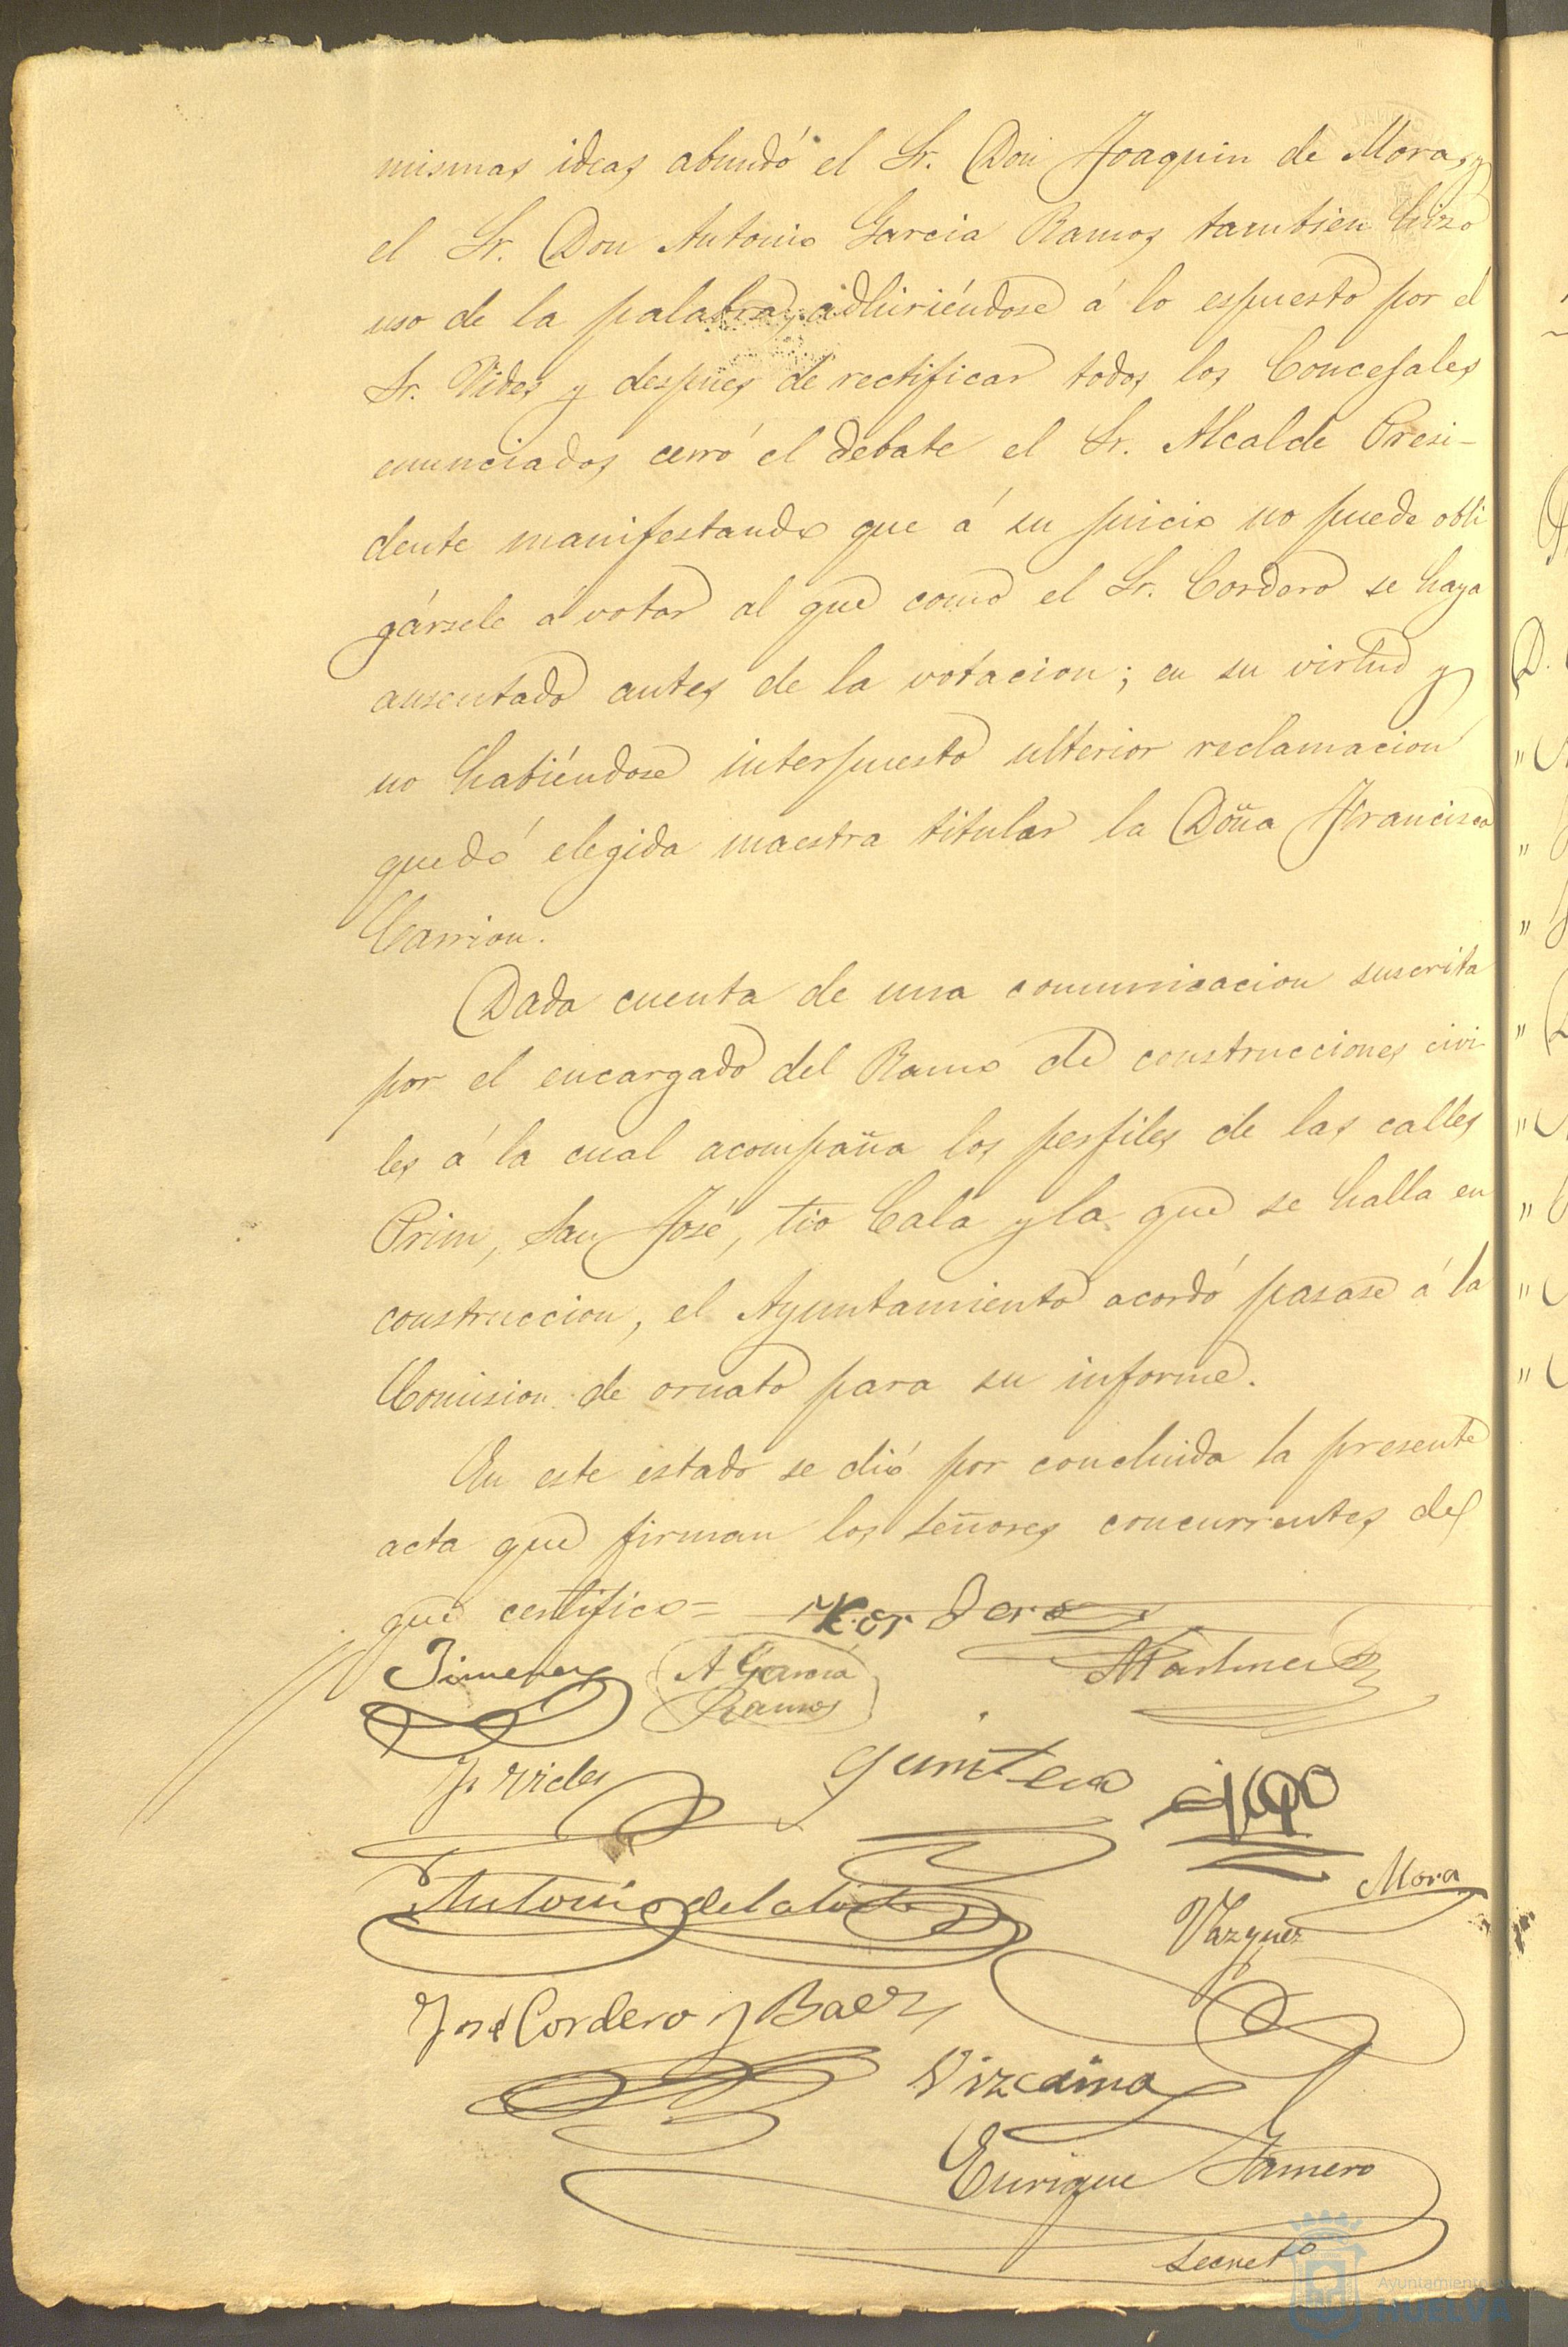 mismas ideas abundó el Sr. Don Joaquin de Mora, y
el Sr. Don Antonio Garcia Ramos tambien hizo
uso de la palabra, adhiriéndose á lo espuesto por el
Sr. Vides y despues de rectificar todos los Concejales
enunciados, cerró el debate el Sr. Alcalde Presi-
dente manifestando que á su juicio no puede obli
gársele á votar al que como el Sr. Cordero se haya
ausentado antes de la votacion; en su virtud y
no habiéndose interpuesto ulterior reclamacion
quedó elegida maestra titular la Doña Francisca
Carrion.
Dada cuenta de una comunicacion suscrita
por el encargado del Ramo de construcciones civi-
les á la cual acompaña los perfiles de las calles
Prim, San José, tio Cala y la que se halla en
construccion, el Ayuntamiento acordó pasase á la
Comision de ornato para su informe.
En este estado se dió por concluida la presente
acta que firman los señores concurrentes del
que certifico=
Jimenez A Garcia Martinez
Ramos
Vides Quintero
Mora
Antonio de la Vázquez
José Cordero y Baez
Vizcaino
Enrique
Secret.º
Ayuntamiento de
HUELVA